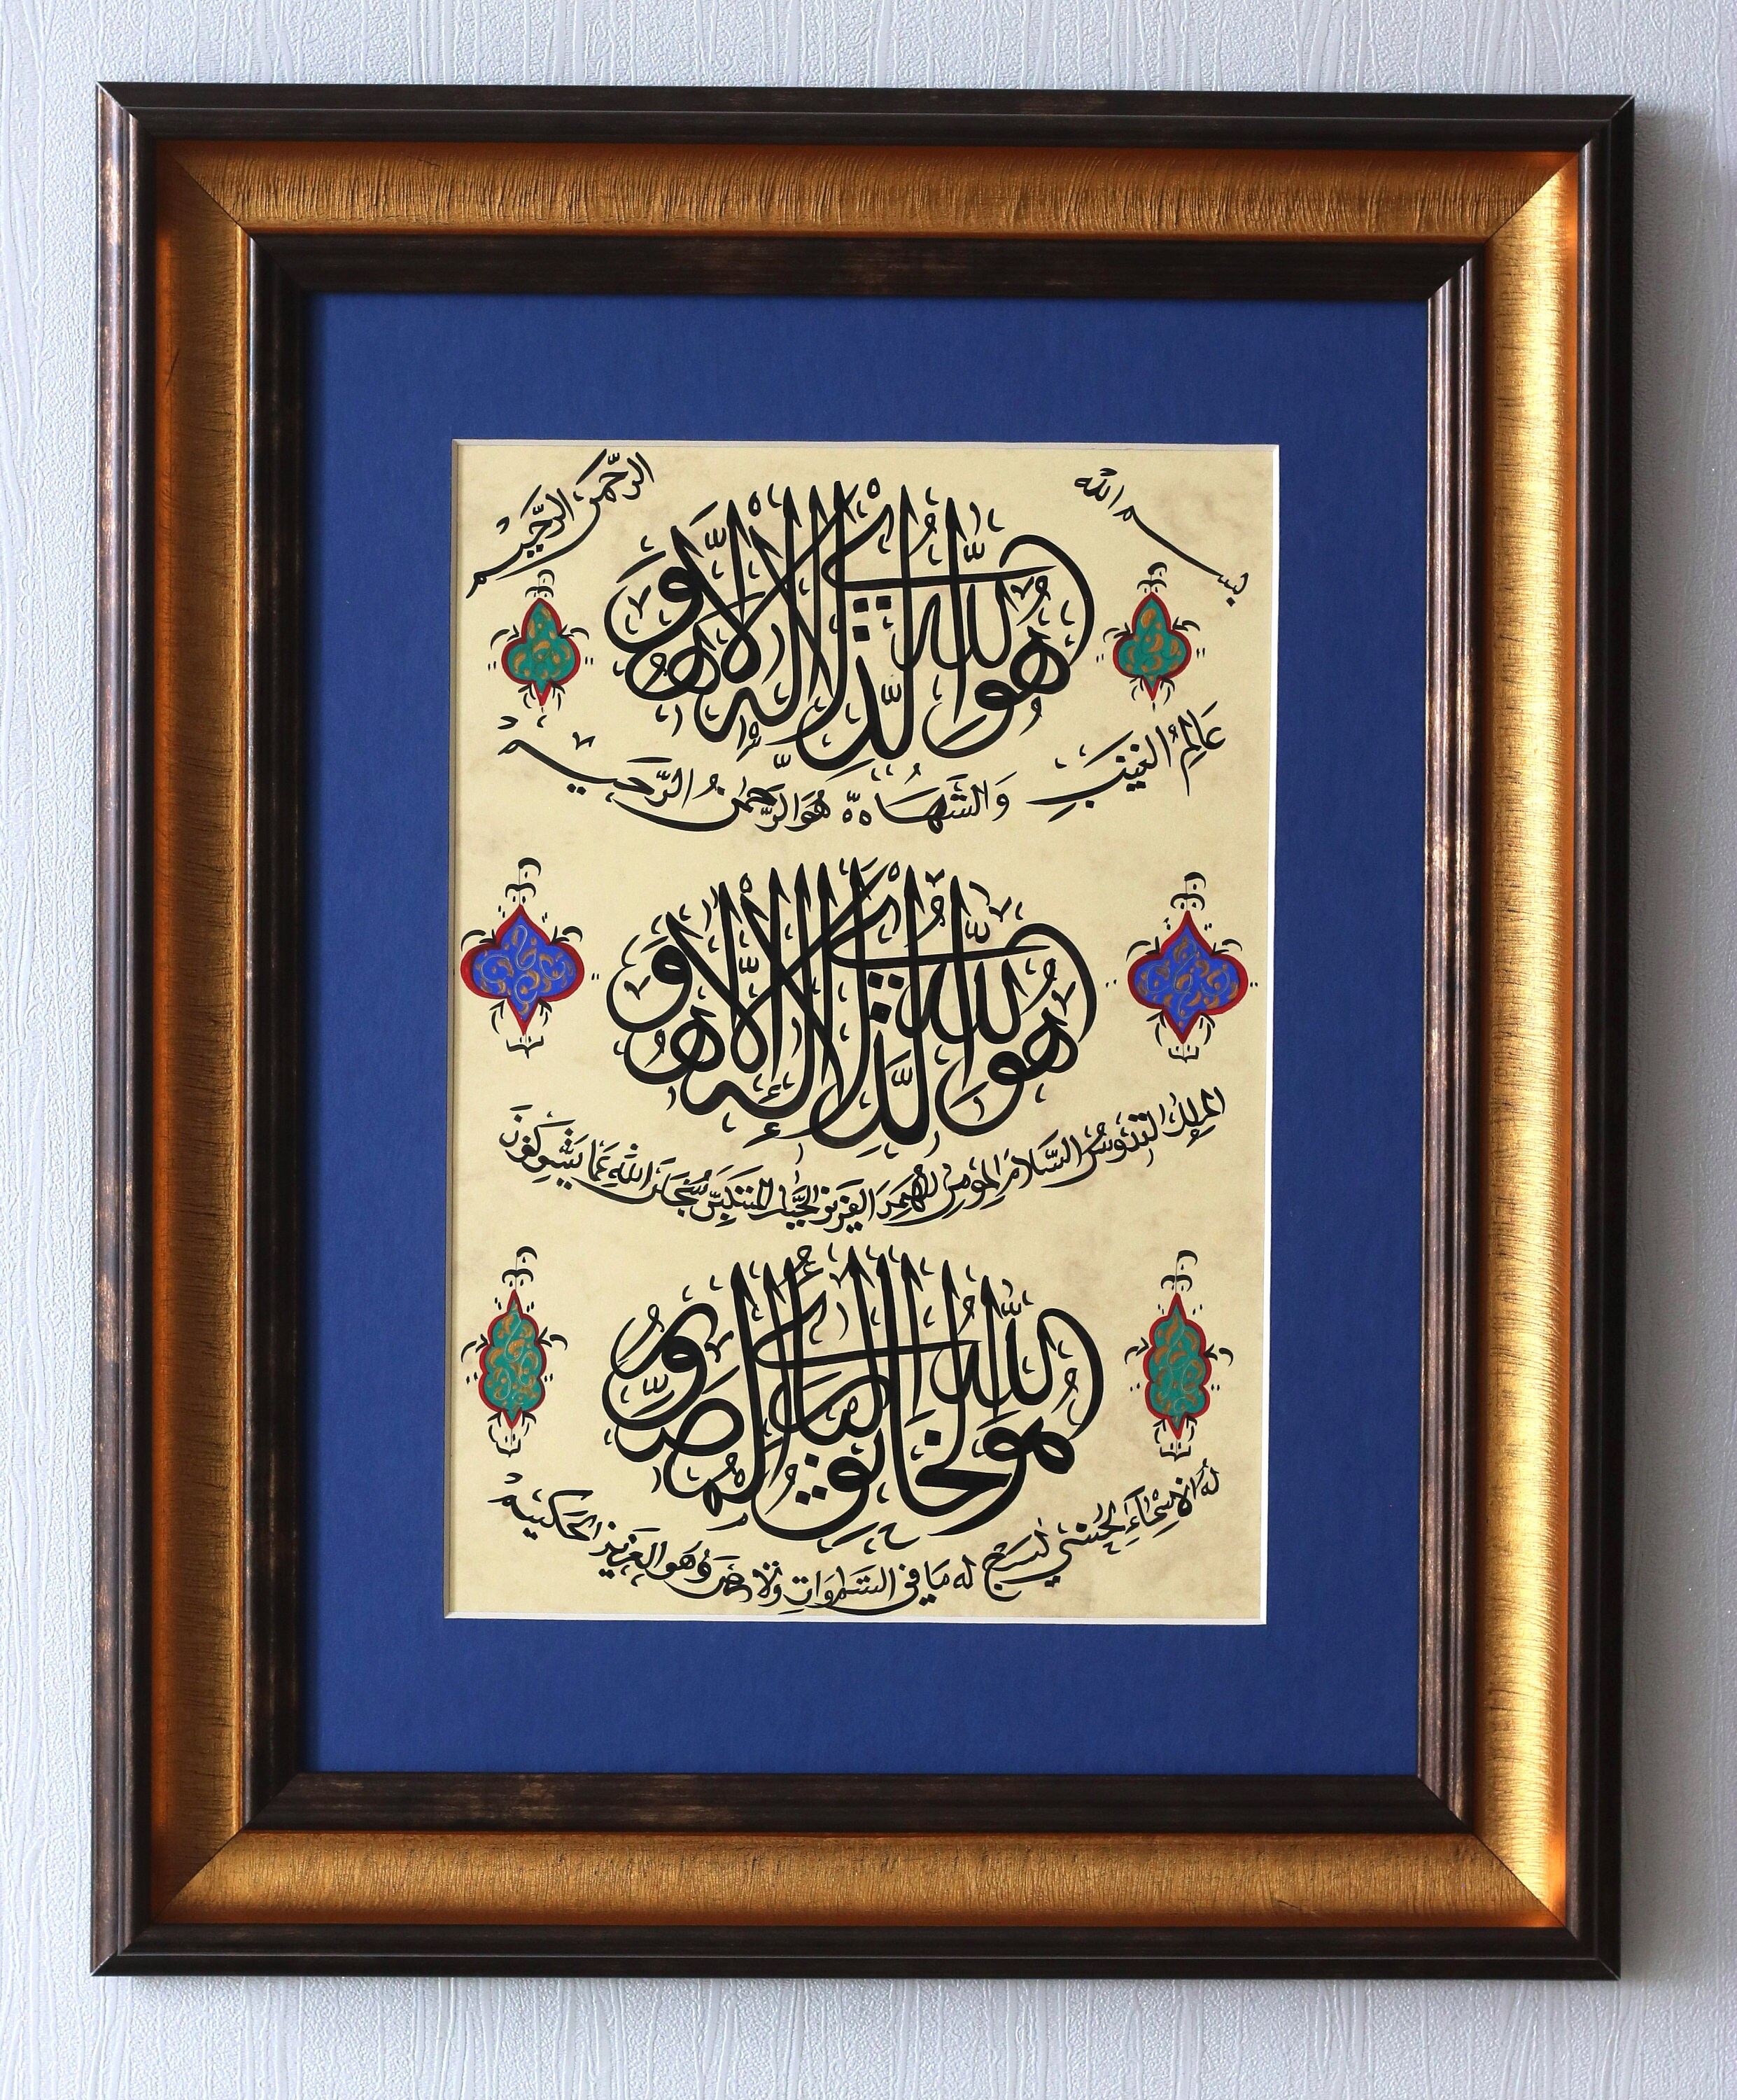 بسم الله
الرحمن الرحيم
هو الله الذي لا إله إلا هو
عَالِمُ الغَيْبِ وَالشَّهَادَةِ هُوَ الرَّحْمٰنُ الرَّحِيمُ
هو الله الذي لا إله إلا هو
الملك القدوس السلام المؤمن المهيمن العزيز الجبار المتكبر سبحان الله عما يشركون
هو الله الخالق البارئ المصور
له الأسماء الحسنى يسبح له ما في السموات والأرض وهو العزيز الحكيم